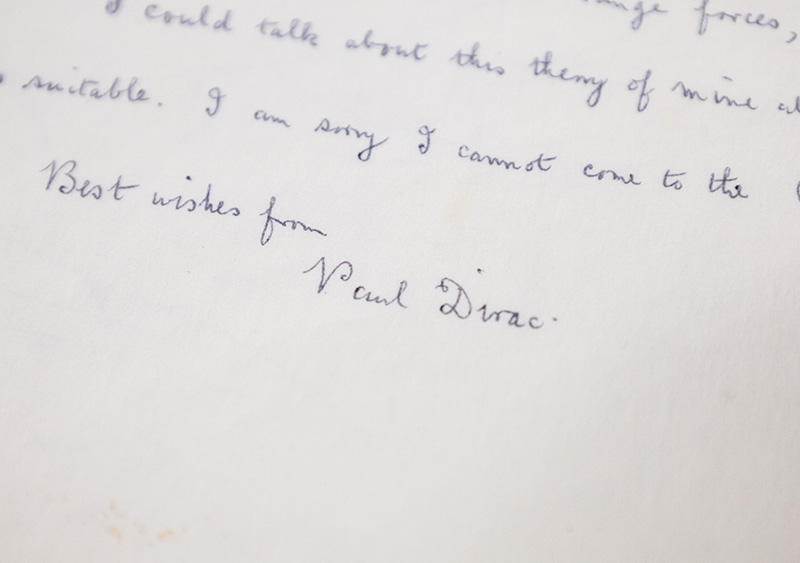 forces,
I could talk about this theory of mine
suitable. I am sorry I cannot come to the
Best wishes from
Paul Dirac.